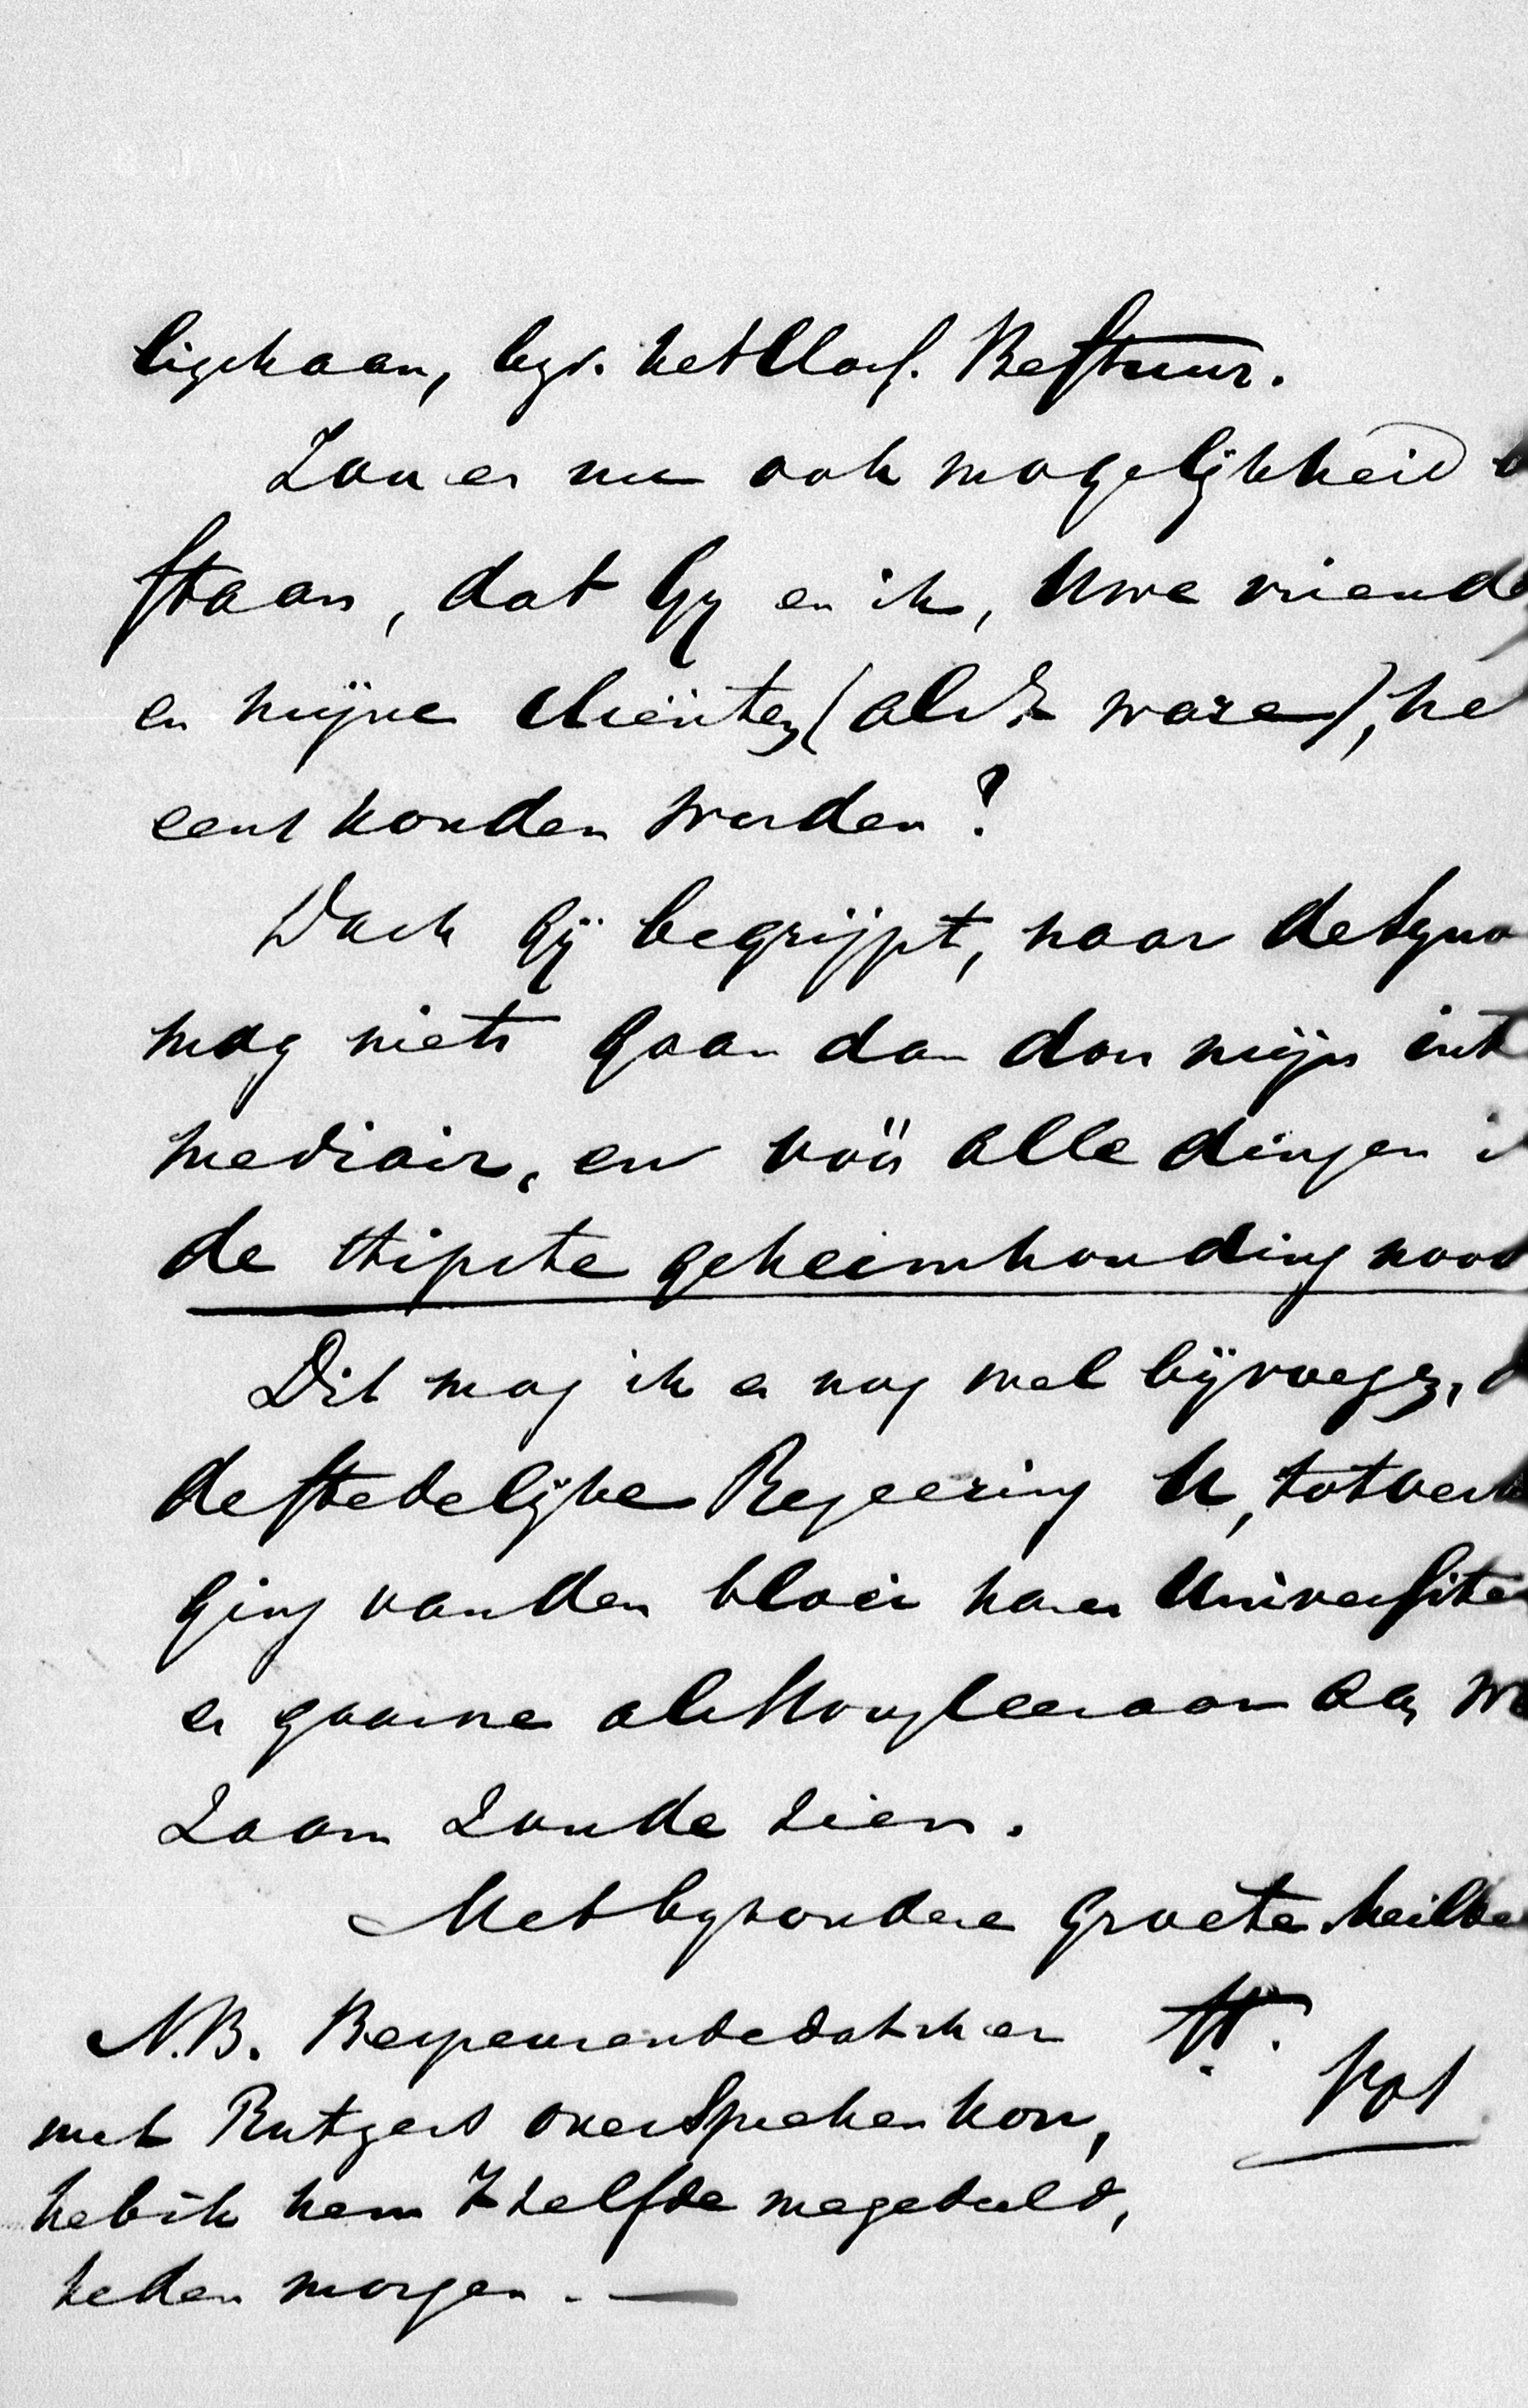 ligchaam, bijv. het Clas. Bestuur.
Zou er nu ook mogelijkheid b
staan, dat Gij en ik, Uwe vriende
en mijne cliënten (als 't ware), he
eens konden worden?
Doch Gij begrijpt, naar de Syno
mag niets gaan dan door mijn int
mediair, en vóór alle dingen i
de stipste geheimhouding nood
Dit mag ik er nog wel bijvoegen, d
de stedelijke Regeering U, tot ver
ging van den bloei harer Universite
er gaarne als Hoogleeraar aan we
zaam zoude zien.
Met bijzondere groete heilbe
N.B. Bespeurende dat ik er
met Rutgers over spreken kon,
heb ik hem 't zelfde megedeeld,
heden morgen. —
tt.
Vos